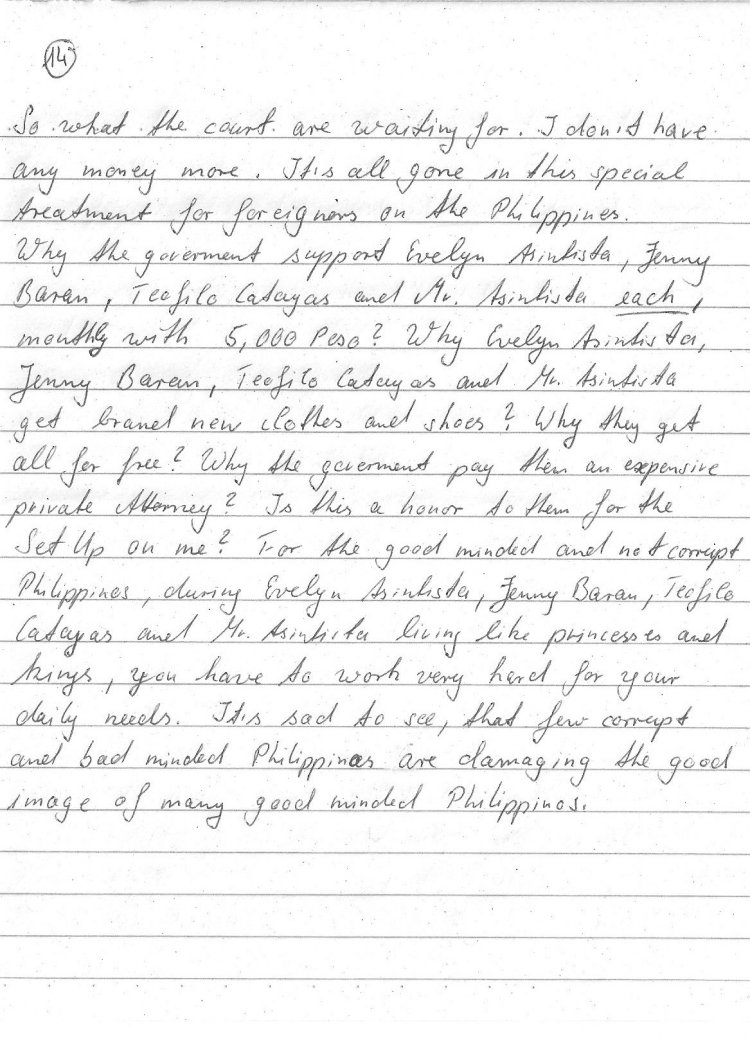 14
So what the court are waiting for. I don't have
any money more. It's all gone in this special
treatment for foreigners on the Philippines.
Why the goverment support Evelyn Asintista, Jenny
Baran, Teofilo Catayas and Mr. Asintista each,
monthly with 5,000 Peso? Why Evelyn Asintista,
Jenny Baran, Teofilo Catayas and Mr. Asintista
get brand new clothes and shoes? Why they get
all for free? Why the goverment pay them an expensive
private Attorney? Is this a honor to them for the
Set Up on me? For the good minded and not corrupt
Philippinos, during Evelyn Asintista, Jenny Baran, Teofilo
Catayas and Mr. Asintista living like princesses and
kings, you have to work very hard for your
daily needs. It's sad to see, that few corrupt
and bad minded Philippinos are damaging the good
image of many good minded Philippinos.